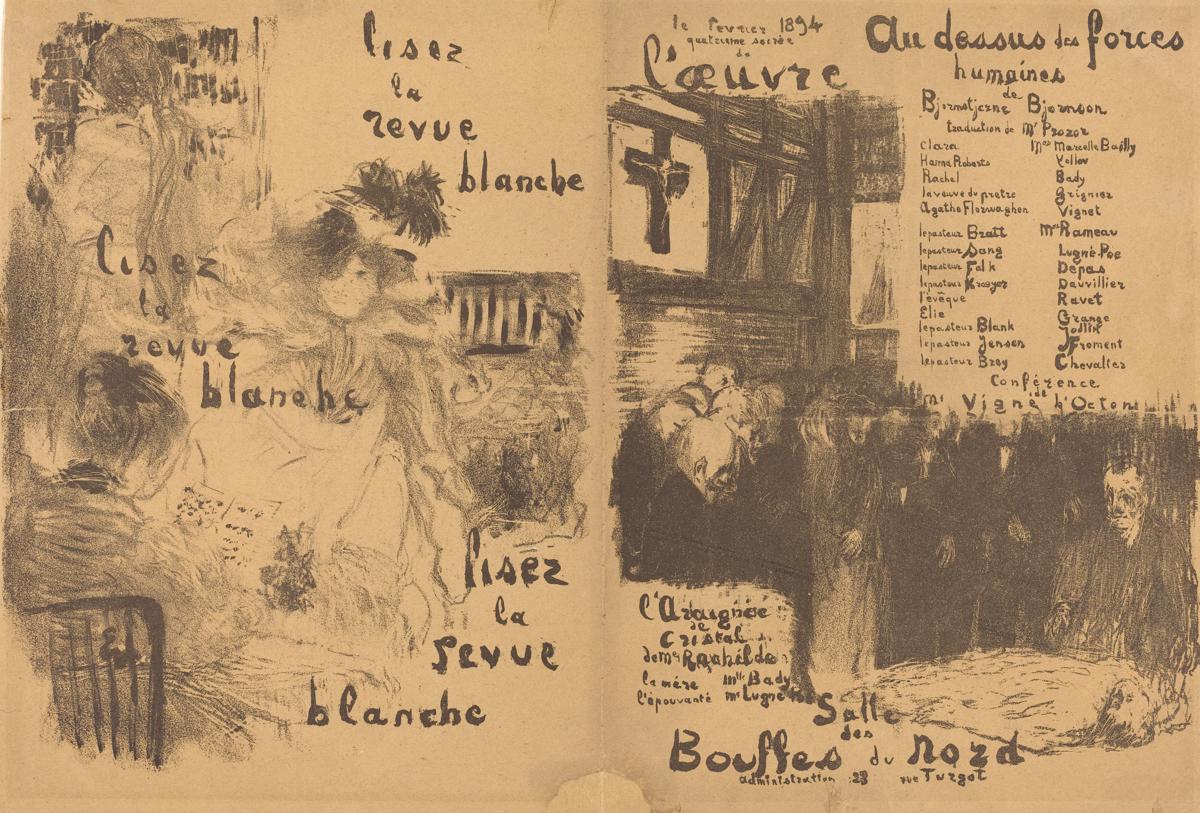 lisez
la
revue
blanche
lisez
la
revue
blanche
lisez
la
revue
blanche
le fevrier 1894
quatrieme soirée
de
l'œuvre
Au dessus des forces
humaines
de
Bjornstjerne Bjornson
traduction de Mr Prozor
Clara Mmes Marcelle Bailly
Hanna Roberts Yellov
Rachel Bady
la veuve du pretre Grignier
Agathe Florwaghen Vignet
le pasteur Bratt Mrs Rameau
le pasteur Sang Lugné-Poe
le pasteur Falk Depas
le pasteur Kroeyer Dauvillier
l'évêque Ravet
Elie Grange
le pasteur Blank Jodlin
le pasteur Jensen JFroment
le pasteur Brey Chevalier
Conférence
de
Mr Vigné d'Octon
l'Araignée
de
Cristal
de Me Rachilde
la mére Mlle Bady
l'épouvanté Mr Lugné Poe
Salle
des
Bouffes du Nord
administration : 23 rue Turgot